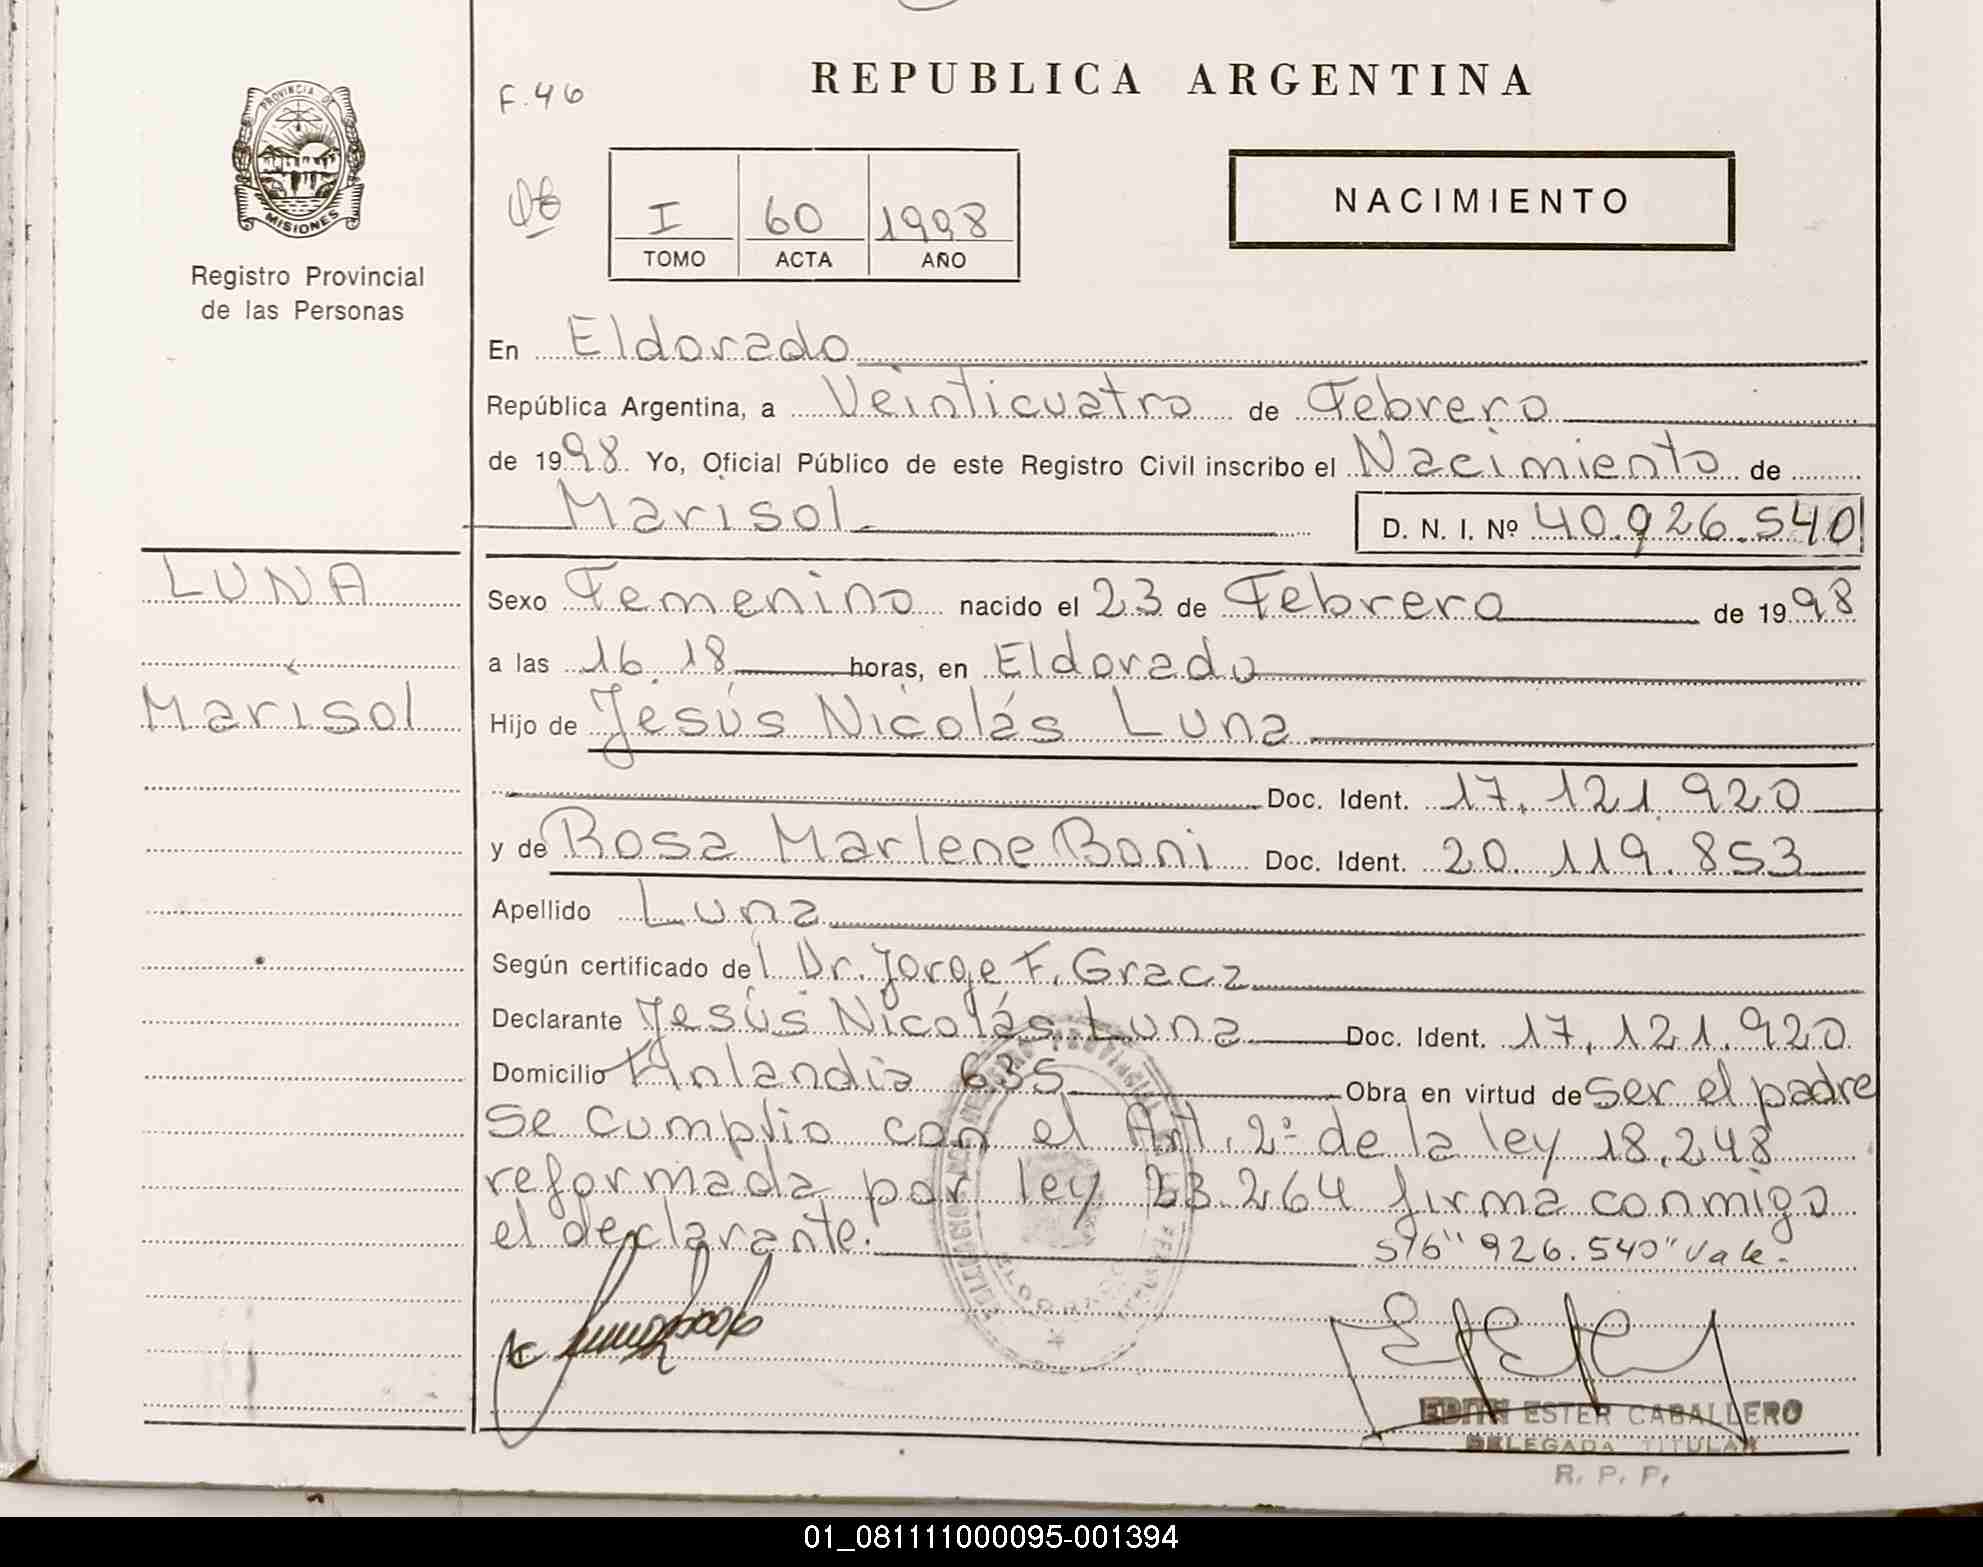 REPUBLICA ARGENTINA
F.46
PROVINCIA DE
MISIONES
I 60 1998
TOMO ACTA AÑO
NACIMIENTO
Registro Provincial
de las Personas
En Eldorado
República Argentina, a Veinticuatro de Febrero
de 1998 Yo, Oficial Público de este Registro Civil inscribo el Nacimiento de
Marisol
D. N. I. Nº 40.926.540
LUNA
Marisol
Sexo Femenino nacido el 23 de Febrero de 1998
a las 16 18 horas, en Eldorado
Hijo de Jesús Nicolás Luna
Doc. Ident. 17.121.920
y de Rosa Marlene Boni Doc. Ident. 20.119.853
Apellido Luna
Según certificado del Dr. Jorge F. Gracz
Declarante Jesús Nicolás Luna Doc. Ident. 17.121.920
Domicilio Finlandia 635 Obra en virtud de ser el padre
se cumplio con el Art. 2º de la ley 18.248
reformada por ley 23.264 firma conmigo
el declarante.
S/b "926.540" Vale.
EDITH ESTER CABALLERO
DELEGADA TITULAR
R. P. P.
01_081111000095-001394